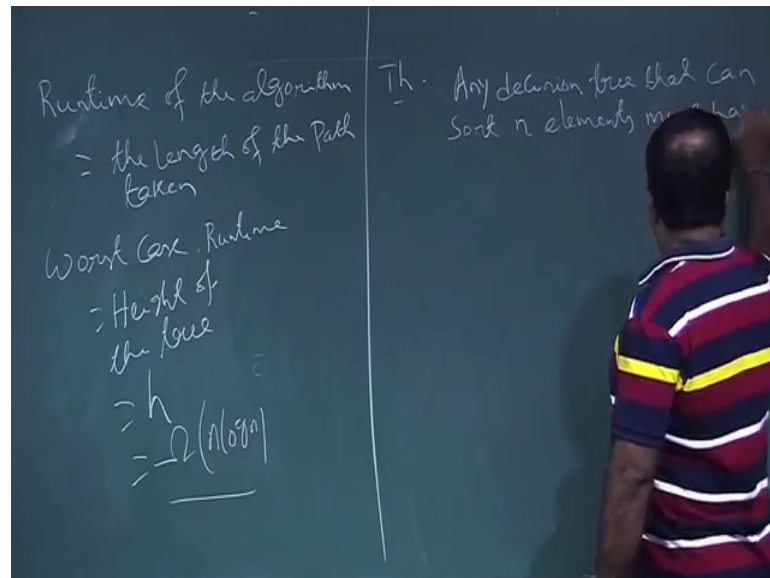 Runtime of the algorithm
= the Length of the Path
taken
Worst Case. Runtime
= Height of
the tree
= h
= Ω(nlogn)
Th. Any decision tree that can
Sort n elements must ha